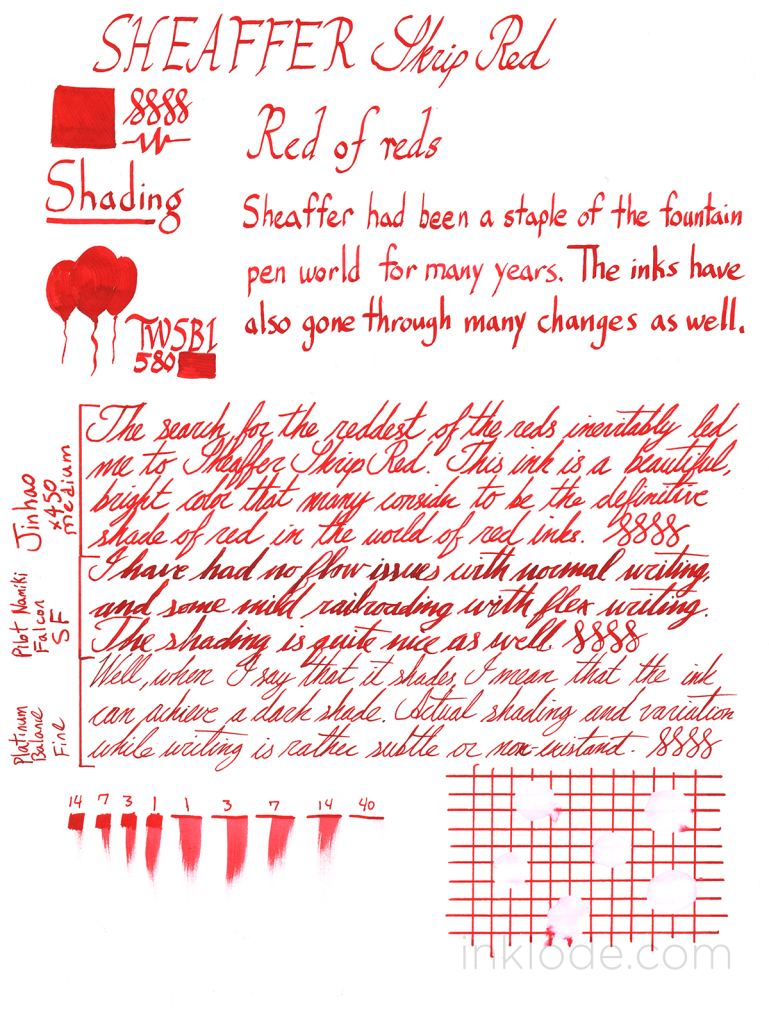 SHEAFFER Skrip Red
Red of reds
Shading
Sheaffer had been a staple of the fountain
pen world for many years. The inks have
also gone through many changes as well.
TWSBI
580
Jinhao
x450
medium
The search for the reddest of the reds inevitably led
me to Sheaffer Skrip Red. This ink is a beautiful,
bright color that many consider to be the definitive
shade of red in the world of red inks.
Pilot Namiki
Falcon
SF
I have had no flow issues with normal writing,
and some mild railroading with flex writing.
The shading is quite nice as well.
Platinum
Balance
Fine
Well, when I say that it shades, I mean that the ink
can achieve a dark shade. Actual shading and variation
while writing is rather subtle or non-existant.
14 7 3 1 1 3 7 14 40
inklode.com